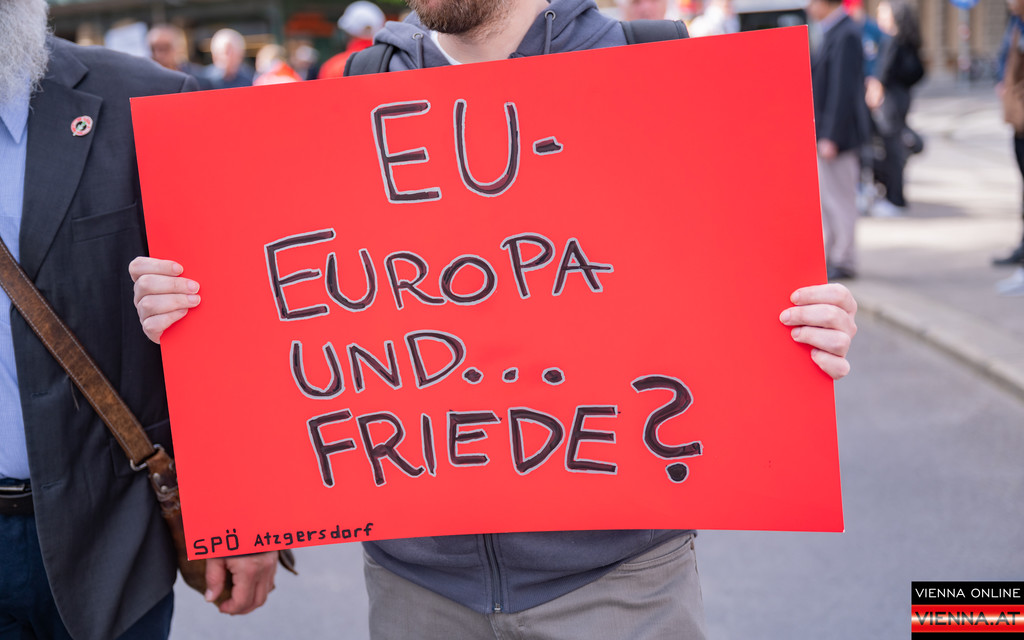 EU-
EUROPA
UND...
FRIEDE?
SPÖ Atzgersdorf
VIENNA ONLINE
VIENNA.AT